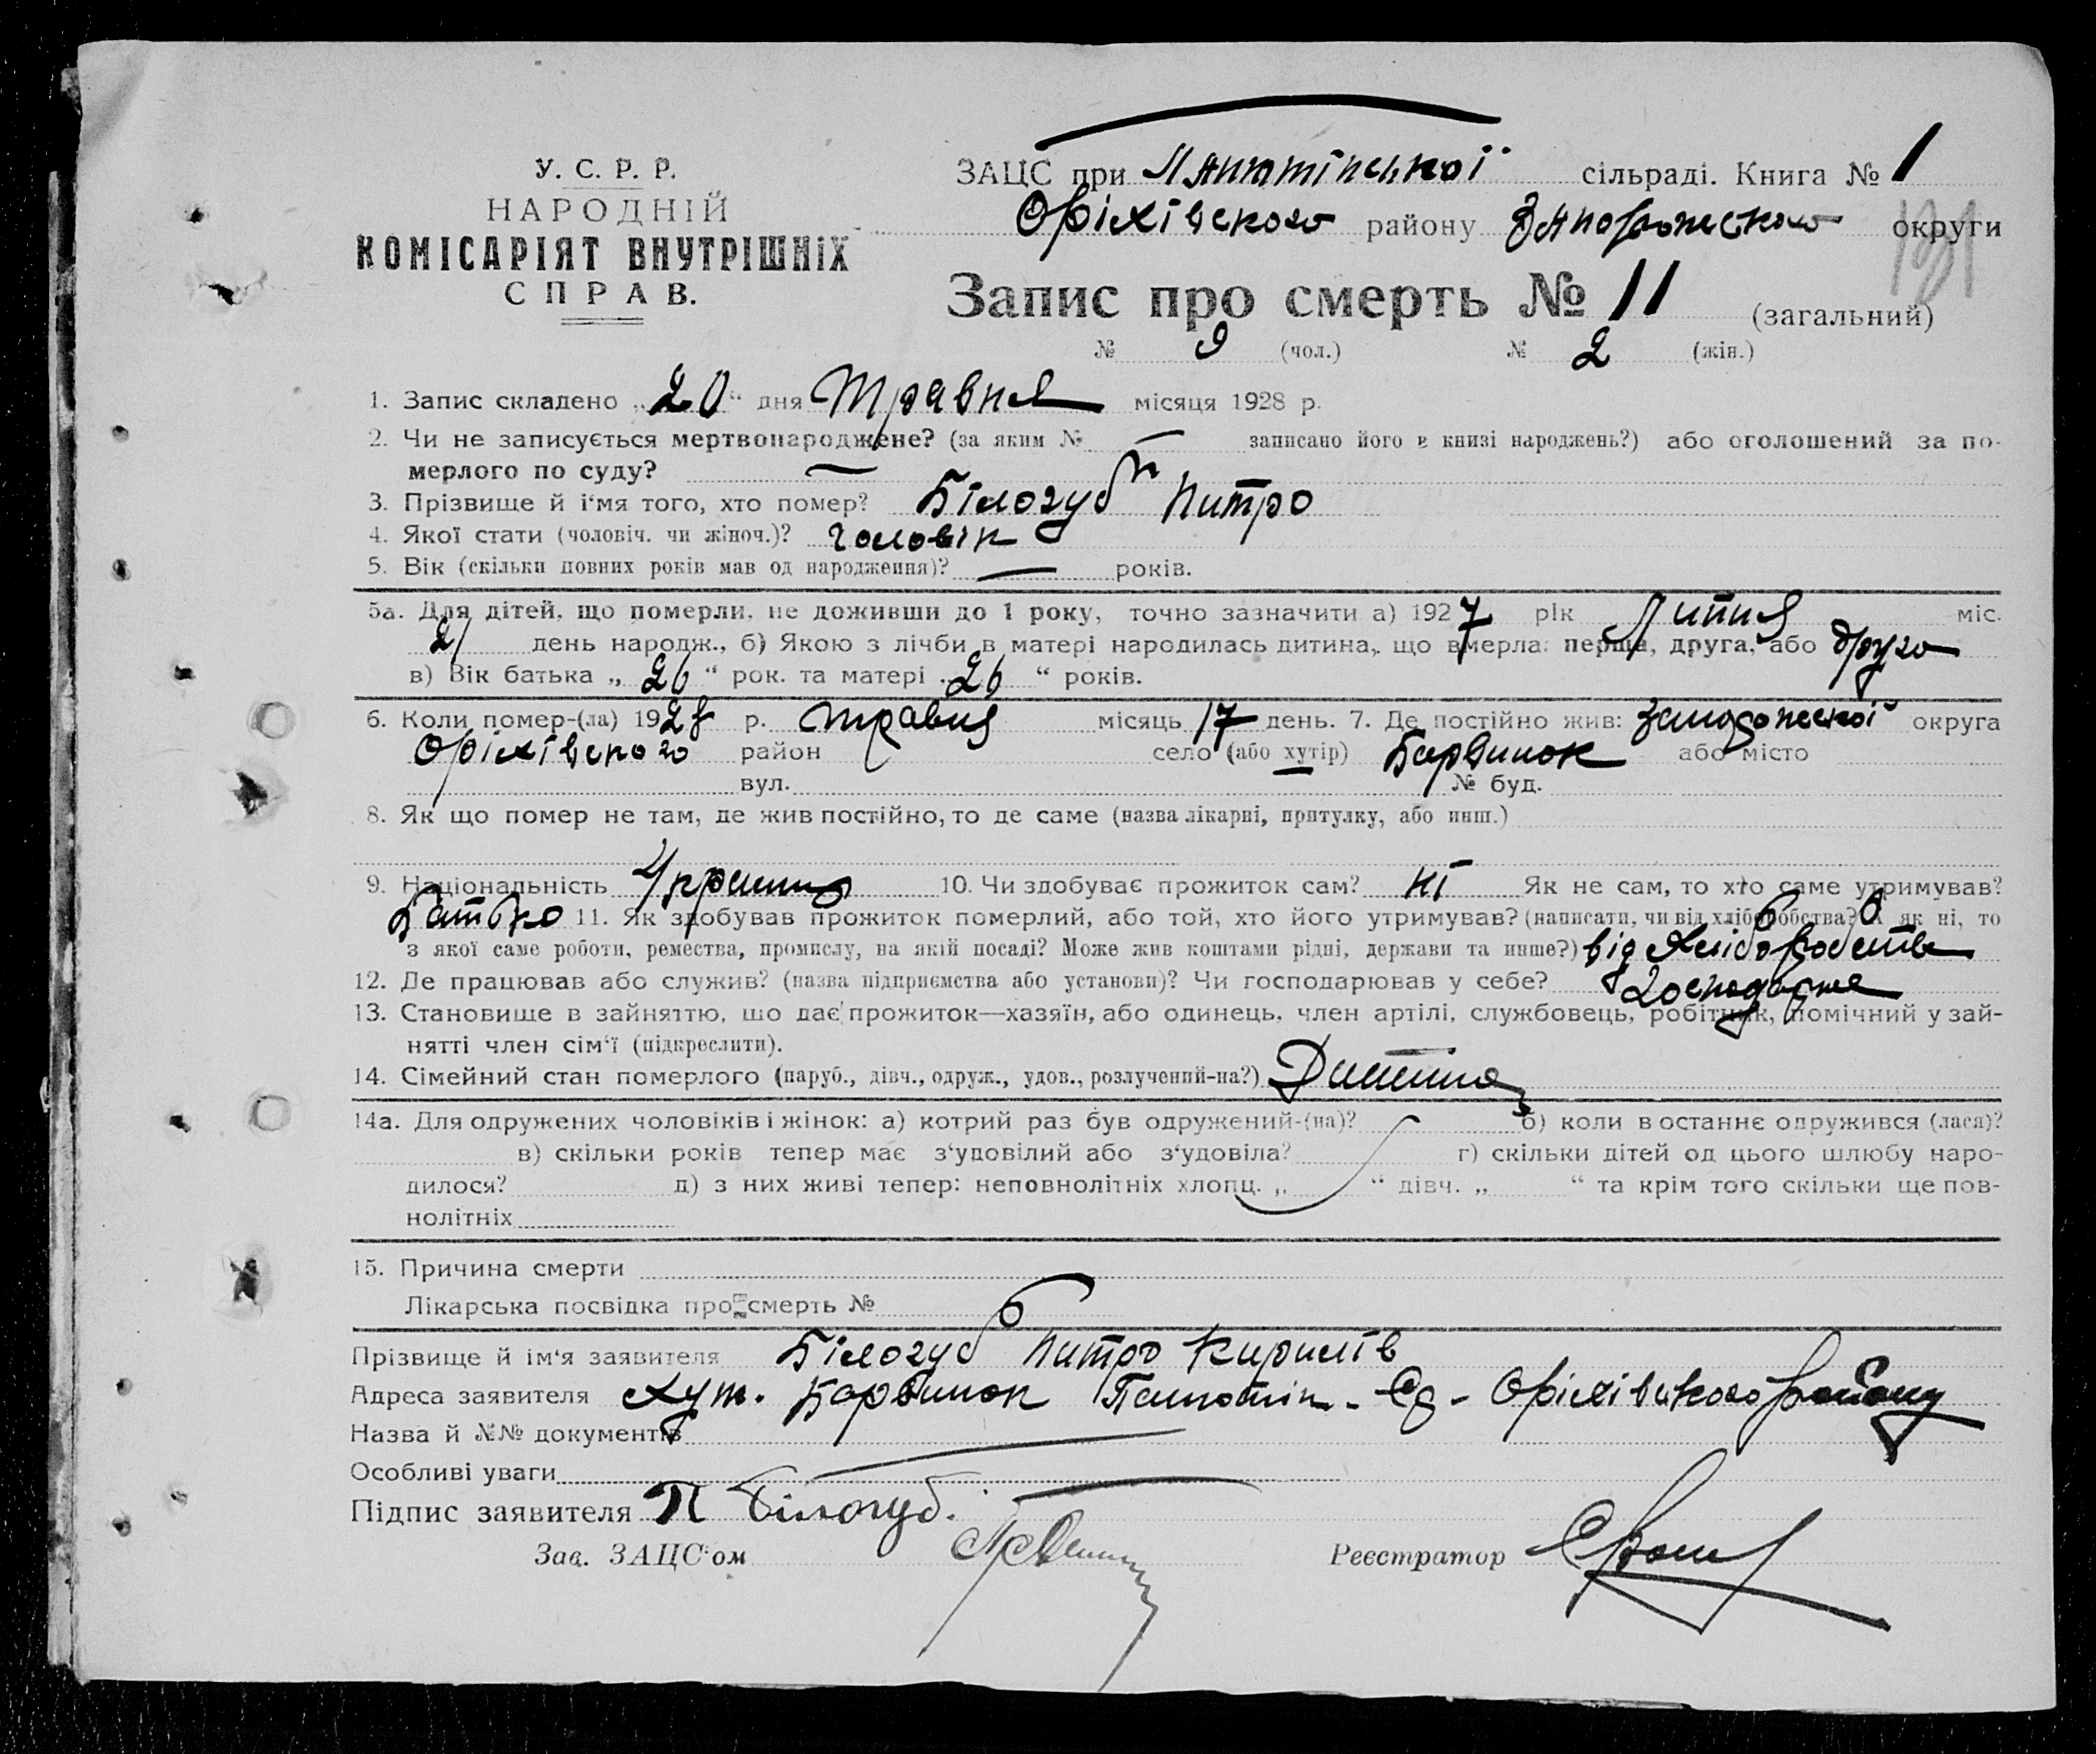 У. С. Р. Р.
НАРОДНІЙ
КОМІСАРІЯТ ВНУТРІШНІХ
СПРАВ.
ЗАЦС при сільраді. Книга № 1
Оріхівського району Запоріжского округи
Запис про смерть № 11 (загальний)
№ 9 (чол.) № 2 (жін.)
1. Запис складено „20“ дня Травня місяця 1928 р.
2. Чи не записується мертвонароджене? (за яким № — записано його в книзі народжень?) або оголошений за по-
мерлого по суду? —
3. Прізвище й і‘мя того, хто помер? Білогуб Питро
4. Якої стати (чоловіч. чи жіноч.)? Чоловік
5. Вік (скільки повних років мав од народження)? — років.
5а. Для дітей, що померли, не доживши до 1 року, точно зазначити а) 1927 рік Липня міс.
21 день народж., б) Якою з лічби в матері народилась дитина, що вмерла: перша, друга, або друго
в) Вік батька „26“ рок. та матері „26“ років.
6. Коли помер-(ла) 1928 р. травня місяць 17 день. 7. Де постійно жив: округа
Оріхівсного район село (або хутір) Барвинок або місто
вул. № буд.
8. Як що помер не там, де жив постійно, то де саме (назва лікарні, притулку, або инш.)
9. Національність 10. Чи здобуває прожиток сам? ні Як не сам, то хто саме утримував?
Батько 11. Як здобував прожиток померлий, або той, хто його утримував? (написати, чи від хліборобства? А як ні, то
з якої саме роботи, ремества, промислу, на якій посаді? Може жив коштами рідні, держави та инше?) від Хліборобства
12. Де працював або служив? (назва підприємства або установи)? Чи господарював у себе?
13. Становище в зайняттю, що дає прожиток—хазяїн, або одинець, член артілі, службовець, робітник, помічний у зай-
нятті член сім‘ї (підкреслити).
14. Сімейний стан померлого (паруб., дівч., одруж., удов., розлучений-на?) Дитина
14а. Для одружених чоловіків і жінок: а) котрий раз був одружений-(на)? б) коли в останнє одружився (лася)?
в) скільки років тепер має з‘удовілий або з‘удовіла? г) скільки дітей од цього шлюбу наро-
дилося? д) з них живі тепер: неповнолітніх хлопц. „ “ дівч. „ “ та крім того скільки ще пов-
нолітніх
15. Причина смерти
Лікарська посвідка про смерть №
Прізвище й ім‘я заявителя Білогуб Питро Кирилів
Адреса заявителя Хут. Барвинок Оріхівського району
Назва й №№ документів
Особливі уваги
Підпис заявителя П Білогуб.
Зав. ЗАЦС‘ом Реєстратор